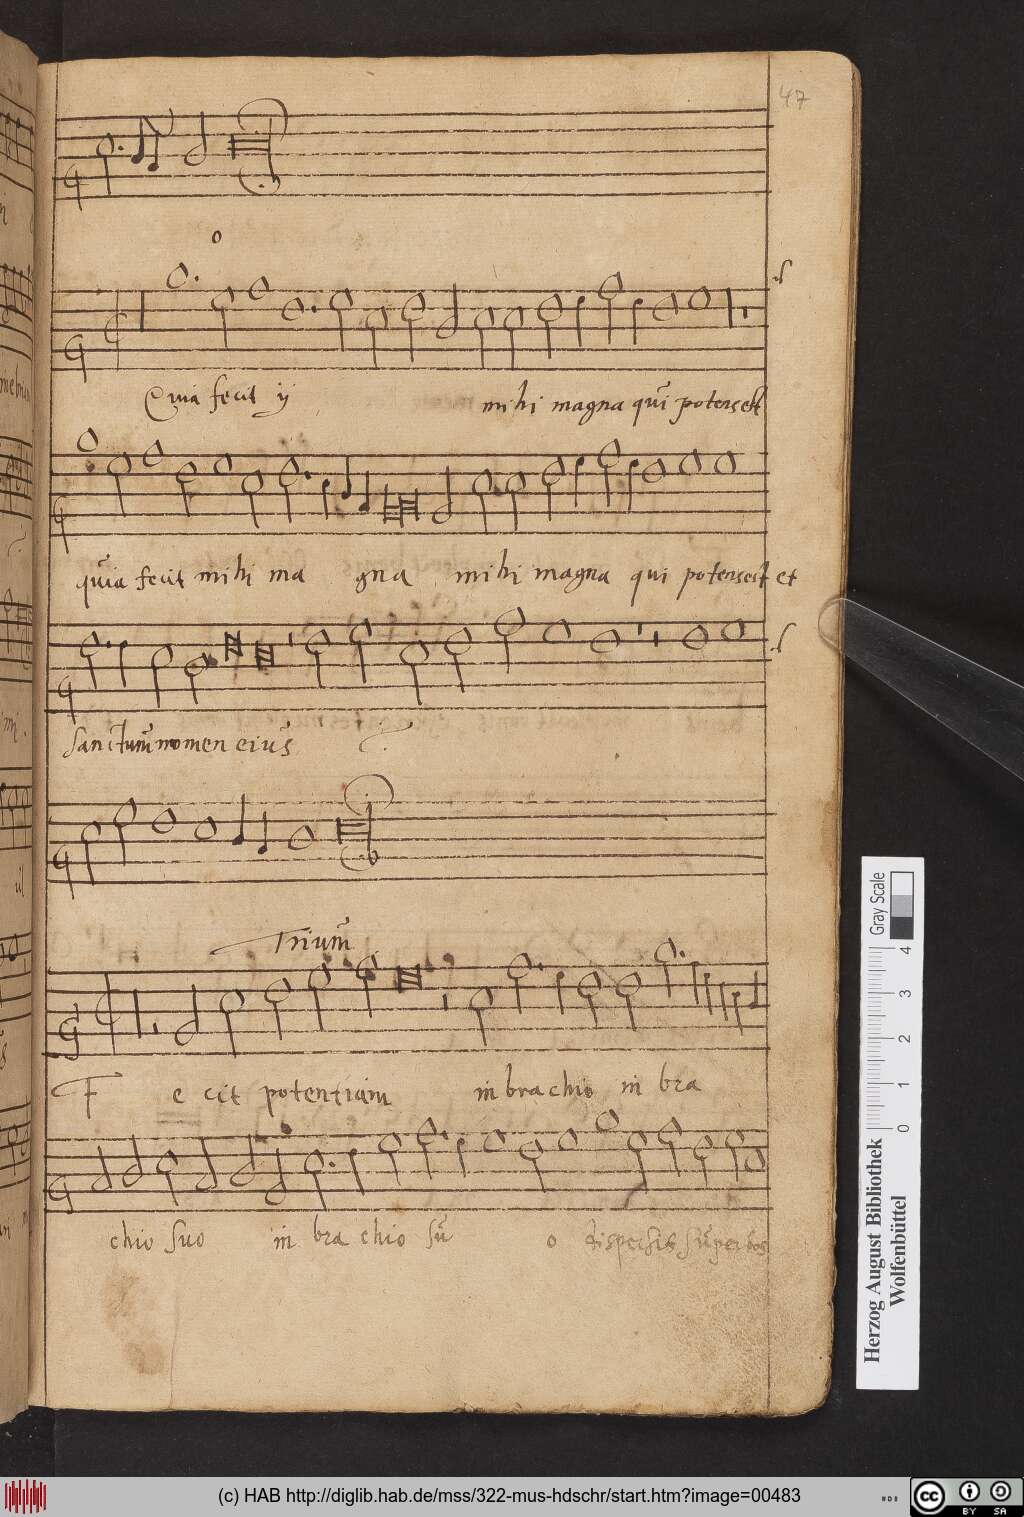 47
o
Quia fecit ij mihi magna qui potens est
quia fecit mihi ma gna mihi magna qui potens est et
sanctum nomen eius
Trium
F e cit potentiam in brachio in bra
chio suo in bra chio su o dispersit superbos
Gray Scale
0 1 2 3 4
Herzog August Bibliothek
Wolfenbüttel
(c) HAB http://diglib.hab.de/mss/322-mus-hdschr/start.htm?image=00483
cc BY SA